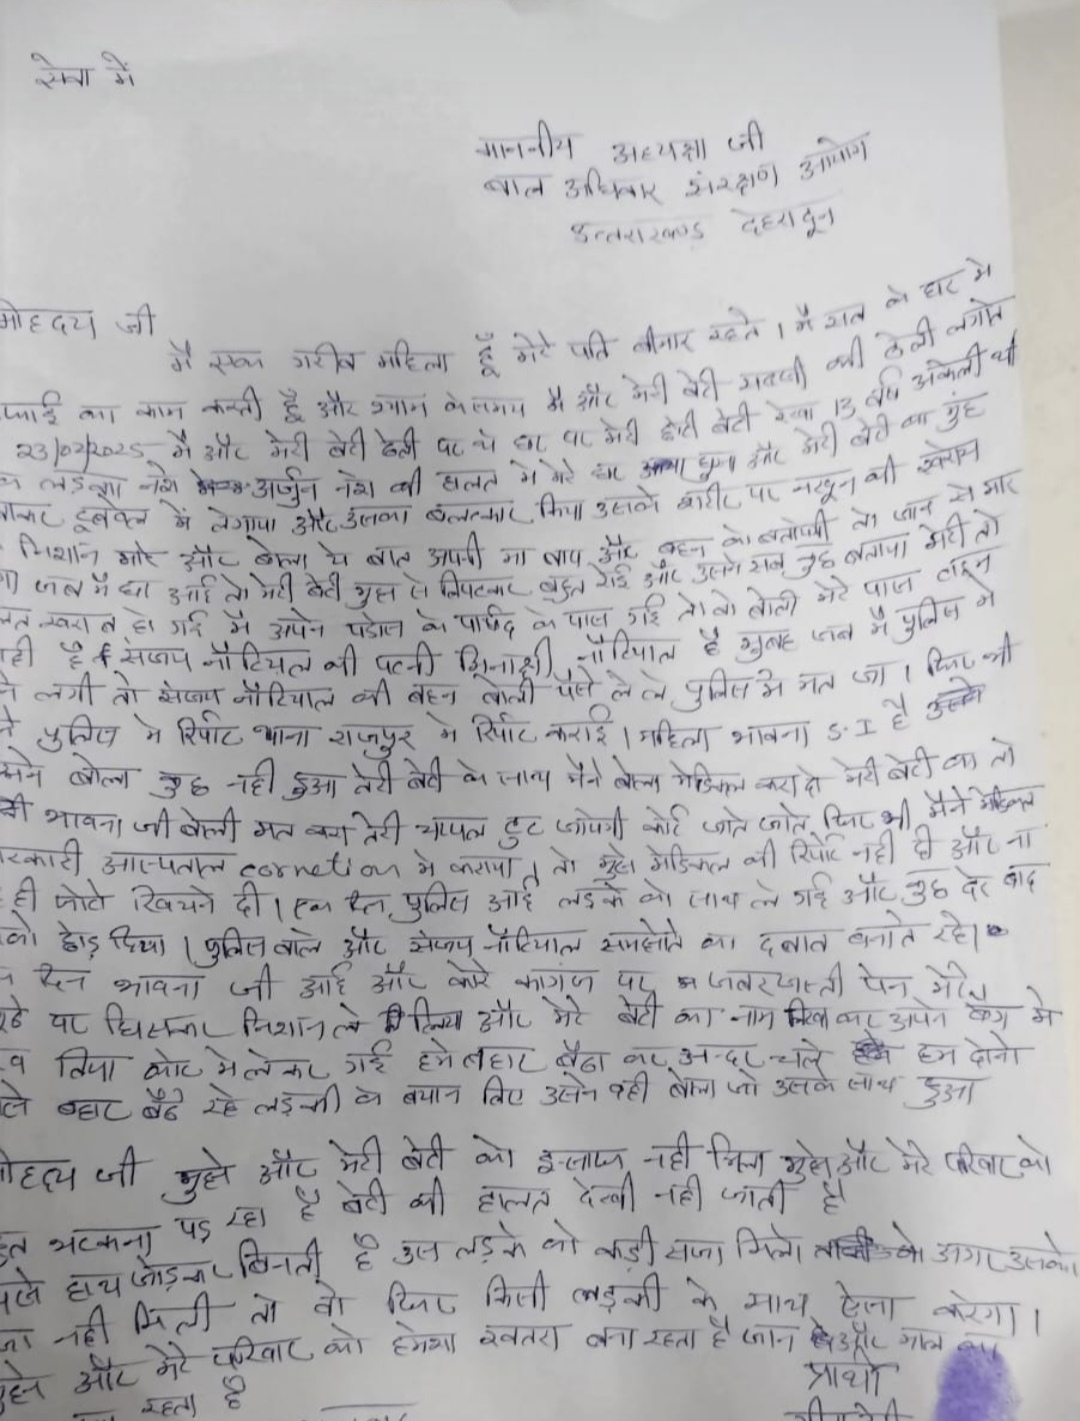 सेवा में
माननीय अध्यक्षा जी
बाल अधिकार संरक्षण आयोग
उत्तराखण्ड देहरादून
मोहदय जी
मै एक गरीब महिला हूँ मेरे पति बीमार रहते । मै रात के घर मे
का काम करती हूँ और श्याम के समय मै और मेरी बेटी सब्जी की ठेली लगाते
23/02/2025 मै और मेरी बेटी ठेली पर थे घर पर मेरी छोटी बेटी रेखा 13 वर्ष अकेली थी
लड़का अर्जुन नशे की हालत मे मेरे घर घुसा और मेरी बेटी का मुंह
में लेगाया और उसका बलत्कार किया उसके शरीर पर नाखून की खरोच
निशान मारे और बोला ये बात अपनी मा बाप और बहन को बतायी तो जान से मार
जब मै घर आई तो मेरी बेटी मुझ से लिपटकर बहुत रोई और उसने सब कुछ बताया मेरी तो
हो गई मै अपने पडोस के पार्षद के पास गई तो वो बोली मेरे पास टाइम
नही है संजय नौटियाल की पत्नी मिनाक्षी नौटियाल है सुबह जब मै पुलिस मे
लगी तो संजय नौटियाल की बहन बोली पैसे ले ले पुलिस मे मत जा । फिर भी
पुलिस मे रिर्पोट थाना राजपुर मे रिर्पोट कराई । महिला भावना S.I है
बोला कुछ नही हुआ तेरी बेटी के साथ मैने बोला मेडिकल करा दो मेरी बेटी का तो
भावना जी बोली मत करा तेरी चप्पल टुट जायेगी कोर्ट जाते जाते फिर भी मैने मेडिकल
आस्पताल cornetion मे कराया । तो मुझे मेडिकल की रिर्पोट नही दी और ना
ही फोटो खिचने दी । एक दिन पुलिस आई लडके को साथ ले गई और कुछ देर बाद
छोड़ दिया । पुलिस वाले और संजय नौटियाल समझोते का दबाव बनाते रहे ।
दिन भावना जी आई और कोरे कागज पर जबरजस्ती पेन मेरे
पर घिसकर निशान ले लिया और मेरे बेटी का नाम लिख कर अपने बैग मे
लिया कोर्ट मे लेकर गई हमे बहार बैठा कर अन्दर चले हम दोनो
बहार बैठे रहे लड़की के बयान लिए उसने वही बोला जो उसके साथ हुआ
मोहदय जी मुझे और मेरी बेटी को इन्साफ नही मिला मुझे और मेरे परिवार को
भटकना पड़ रहा है बेटी की हालत देखी नही जाती है
हाथ जोड़कर बिनती है उस लड़के को कड़ी सजा मिले अगर उसको
नही मिली तो वो फिर किसी लड़की के साथ ऐसा करेगा ।
और मेरे परिवार को हमेशा खतरा बना रहता है जान और माल का
रहता है
प्रार्थी